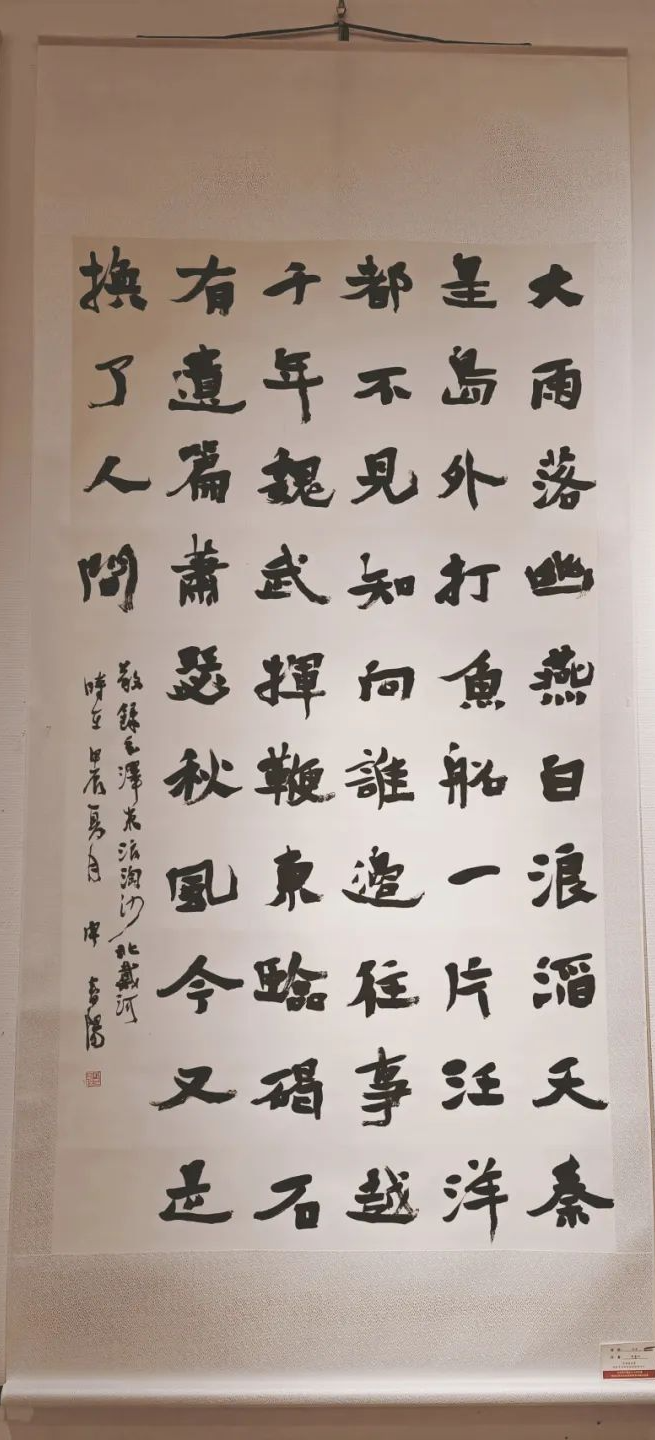 大雨落幽燕白浪滔天秦
皇島外打魚船一片汪洋
都不見知向誰邊往事越
千年魏武揮鞭東臨碣石
有遺篇蕭瑟秋風今又是
換了人間
敬錄毛澤東浪淘沙北戴河
時在甲辰夏月